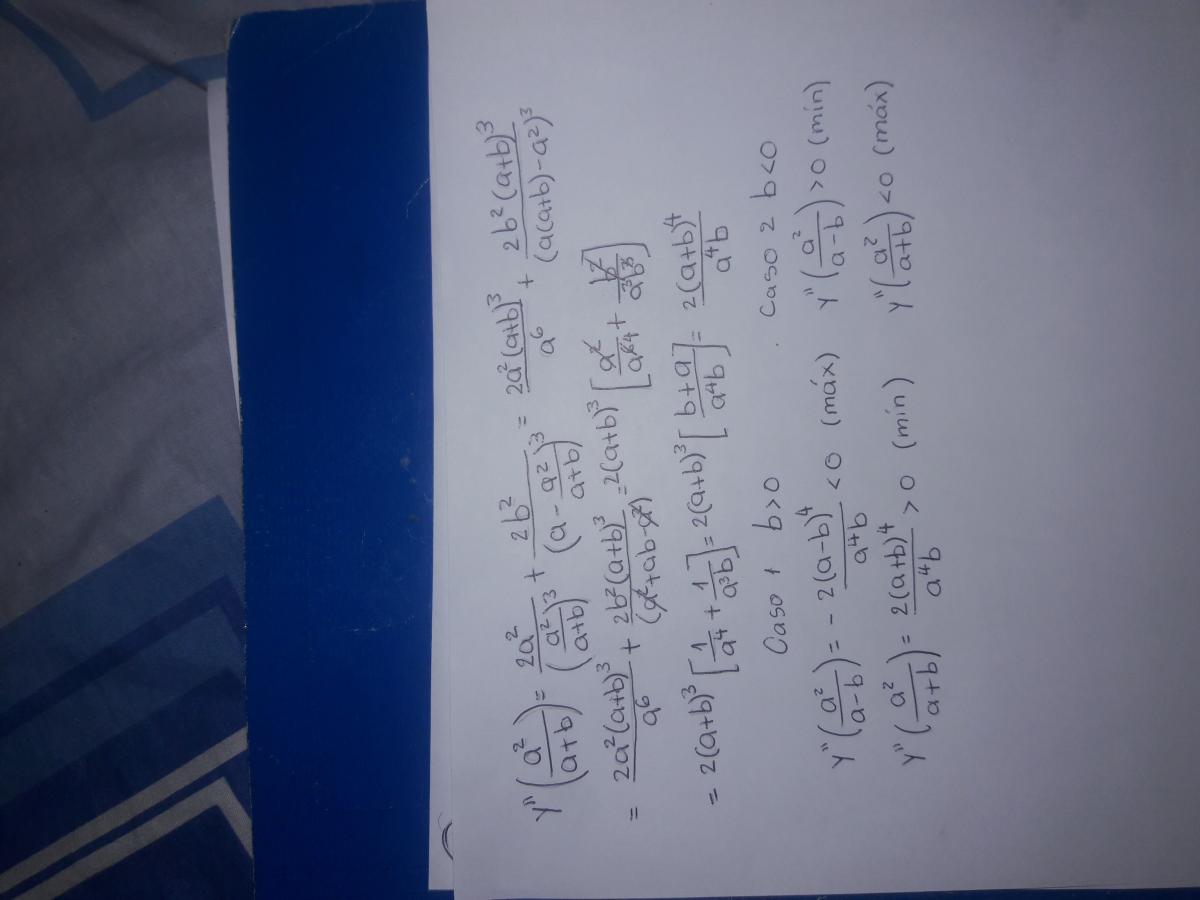 y''(a²/(a+b)) = 2a²/(a²/(a+b))³ + 2b²/(a - a²/(a+b))³ = 2a²(a+b)³/a⁶ + 2b²(a+b)³/(a(a+b)-a²)³
= 2a²(a+b)³/a⁶ + 2b²(a+b)³/(a²+ab-a²) = 2(a+b)³ [a²/a⁶⁴ + b²/a³b³]
= 2(a+b)³ [1/a⁴ + 1/a³b] = 2(a+b)³ [b+a/a⁴b] = 2(a+b)⁴/a⁴b
Caso 1 b>0 . Caso 2 b<0
y''(a²/a-b) = - 2(a-b)⁴/a⁴b <0 (máx) y''(a²/a-b) >0 (mín)
y''(a²/a+b) = 2(a+b)⁴/a⁴b >0 (mín) y''(a²/a+b) <0 (máx)